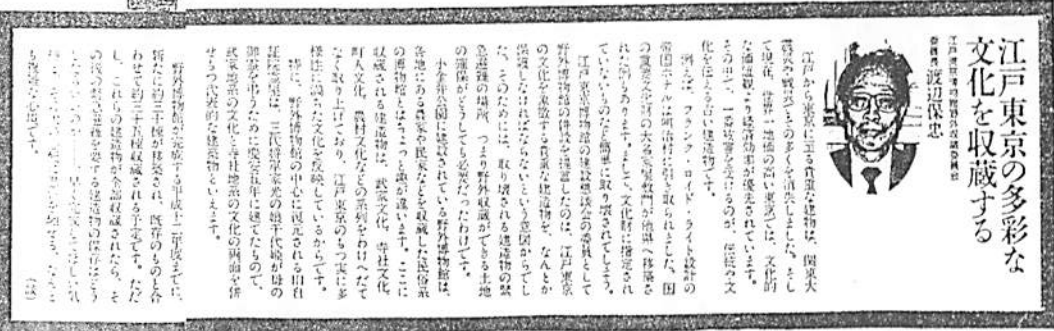 江戸東京の多彩な
文化を収蔵する
渡辺保忠
江戸から東京に至る貴重な建物は、関東大
震災や戦災でその多くを消失しました。そし
て現在、世界一地価の高い東京では、文化的
な価値観より経済効率が優先されています。
その中で、一番被害を受けるのが、伝統や文
化を伝える古い建造物です。
例えば、フランク・ロイド・ライト設計の
帝国ホテルは明治村に引き取られました。国
の重要文化財の大名家屋敷門が他県へ移築さ
れた例もあります。まして、文化財に指定され
ていないものなど簡単に取り壊されてしまう。
江戸東京博物館の建設懇談会の委員として
野外博物館の併設を提案したのは、江戸東京
の文化を象徴する貴重な建造物を、なんとか
保護しなければならないという意図からでし
た。そのためには、取り壊される建造物の緊
急避難の場所、つまり野外収蔵ができる土地
の確保がどうしても必要だったわけです。
小金井公園に建設されている野外博物館は、
各地にある農家や民家などを収蔵した民俗系
の博物館とはちょっと趣が違います。ここに
収蔵される建造物は、武家文化、寺社文化、
町人文化、農村文化などの系列をわけへだて
なく取り上げており、江戸東京のもつ実に多
様性に満ちた文化を反映しているからです。
特に、野外博物館の中心に復元される旧自
証院霊屋は、三代将軍家光の娘千代姫が母の
御霊を弔うために慶安五年に建てたもので、
武家地系の文化と寺社地系の文化の両面を併
せもつ代表的な建築物といえます。
野外博物館が完成する平成十二年度までに、
新たに約三十棟が移築され、既存のものと合
わせて約三十五棟収蔵される予定です。ただ
し、これらの建造物が全部収蔵されたら、そ
の後の緊急避難を要する建造物の保存はどう
も複雑な心境です。
(談)